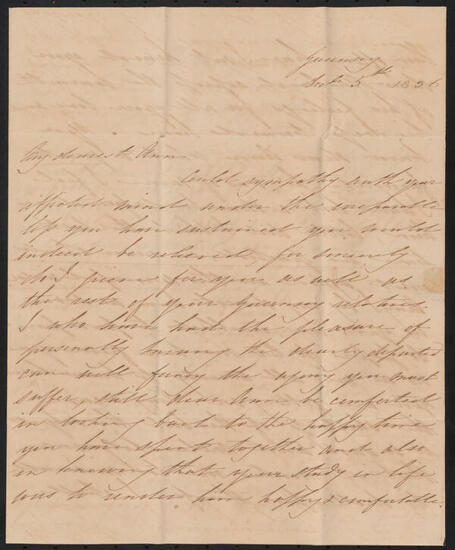 Guernsey
5th 1836
My dearest Ann
Could sympathy with your
afflicted mind under the irreparable
loss you have sustained you would
indeed be relieved for sincerely
do I grieve for you as well as
the rest of your Guernsey relations
I who have had the pleasure of
personally knowing the dearly departed
can well fancy the agony you must
suffer, still dear Ann be comforted
in looking back to the happy time
you have spent together and also
in knowing that your study in life
was to render him happy & comfortable.